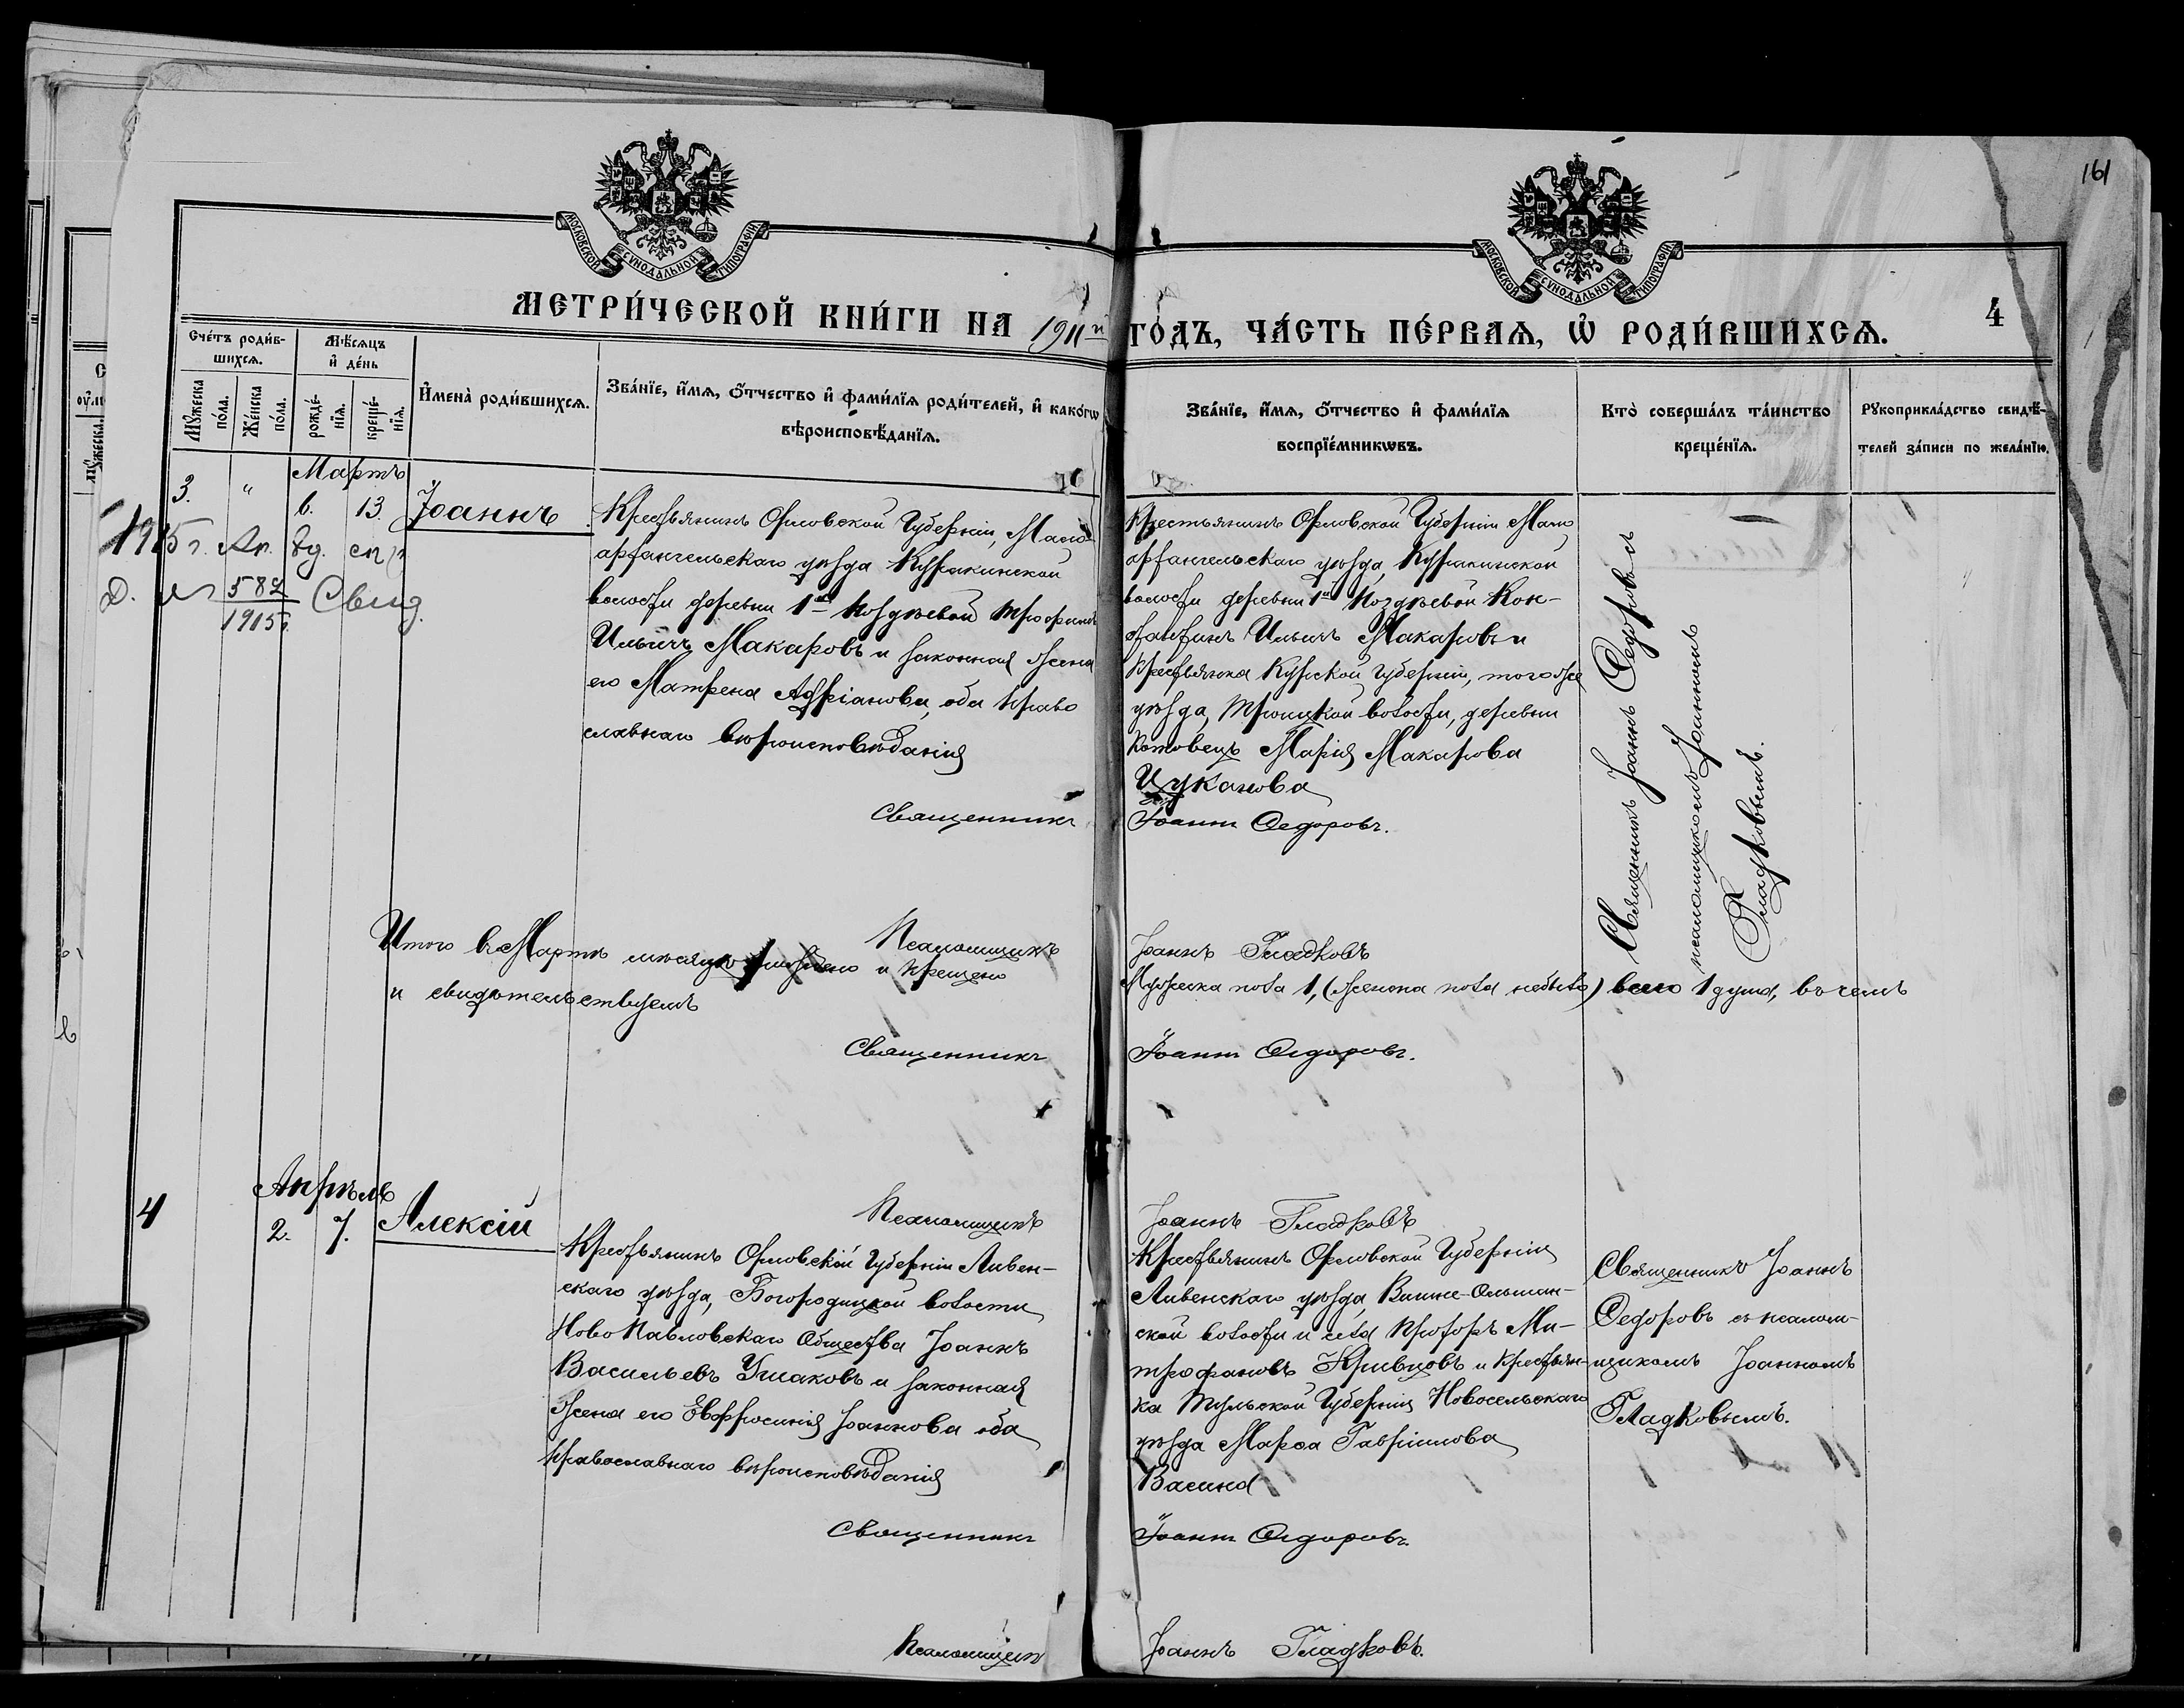 161
МОСКОВСКОЙ СУНОДАЛЬНОЙ ТИПОГРАФІИ
МОСКОВСКОЙ СУНОДАЛЬНОЙ ТИПОГРАФІИ
МЕТРИ́ЧЕСКОЙ КНИ́ГИ НА 1911й ГО́ДЪ, ЧА́СТЬ ПЕ́РВАѦ, Ѡ҆ РОДИ́ВШИХСѦ.
4
Сче́тъ роди́в-
шихсѧ.
Мꙋ́жеска
по́ла.
Же́нска
по́ла.
Мѣ́сѧцъ
и҆ де́нь
рожде́-
нїѧ.
креще́-
нїѧ.
И҆мена̀ роди́вшихсѧ.
Зва́нїе, и҆́мѧ, ѻ҆́тчество и҆ фами́лїѧ роди́телей, и҆ како́гѡ
вѣроисповѣ́данїѧ.
Зва́нїе, и҆́мѧ, ѻ҆́тчество и҆ фами́лїѧ
воспрїе́мникѡвъ.
Кто̀ соверша́лъ та́инство
креще́нїѧ.
Рꙋкоприкла́дство свидѣ́-
телей за́писи по жела́нїю.
Мартъ
3. " 6. 13. Іоаннъ
1915 г. Ап.
582
1915 г. Свид.
Крестьянинъ Орловской Губерніи, Мало-
архангельскаго уѣзда Куракинской
волости деревни 1й Поздѣевой Трофимъ
Ильичъ Макаровъ и законная жена
его Матрена Адріанова, оба право
славнаго вѣроисповѣданія
Священникъ
Крестьянинъ Орловской Губерніи Мало
архангельскаго уѣзда, Куракинской
волости деревни 1й Поздѣевой Кон-
стантинъ Ильичъ Макаровъ и
крестьянка Курской Губерніи, того же
уѣзда, Троицкой волости, деревни
Котовецъ Марія Макарова
Цуканова
Іоаннъ Ѳедоровъ.
Священникъ Іоаннъ Ѳедоровъ съ
псаломщикомъ Іоанномъ
Гладковымъ.
Псаломщикъ
Іоаннъ Гладковъ
Итого въ Мартѣ мѣсяцѣ рождено и крещено
Мужеска пола 1, (женска пола небыло) всего 1 душа, въ чемъ
и свидѣтельствуемъ
Священникъ
Іоаннъ Ѳедоровъ.
Псаломщикъ
Іоаннъ Гладковъ
Апрѣль
4 2. 7. Алексій
Крестьянинъ Орловской Губерніи Ливен-
скаго уѣзда, Богородицкой волости
Ново Павловскаго Общества Іоаннъ
Васильевъ Ушаковъ и законная
жена его Евфросинія Іоаннова оба
православнаго вѣроисповѣданія
Священникъ
Крестьянинъ Орловской Губерніи
Ливенскаго уѣзда, Вышне-Ольшан-
ской волости и села Прохоръ Ми-
трофановъ Кривцовъ и Крестьян-
ка Тульской Губерніи Новосельскаго
уѣзда Марѳа Гавріилова
Васина
Іоаннъ Ѳедоровъ.
Священникъ Іоаннъ
Ѳедоровъ съ псалом-
щикомъ Іоанномъ
Гладковымъ.
Псаломщикъ
Іоаннъ Гладковъ.